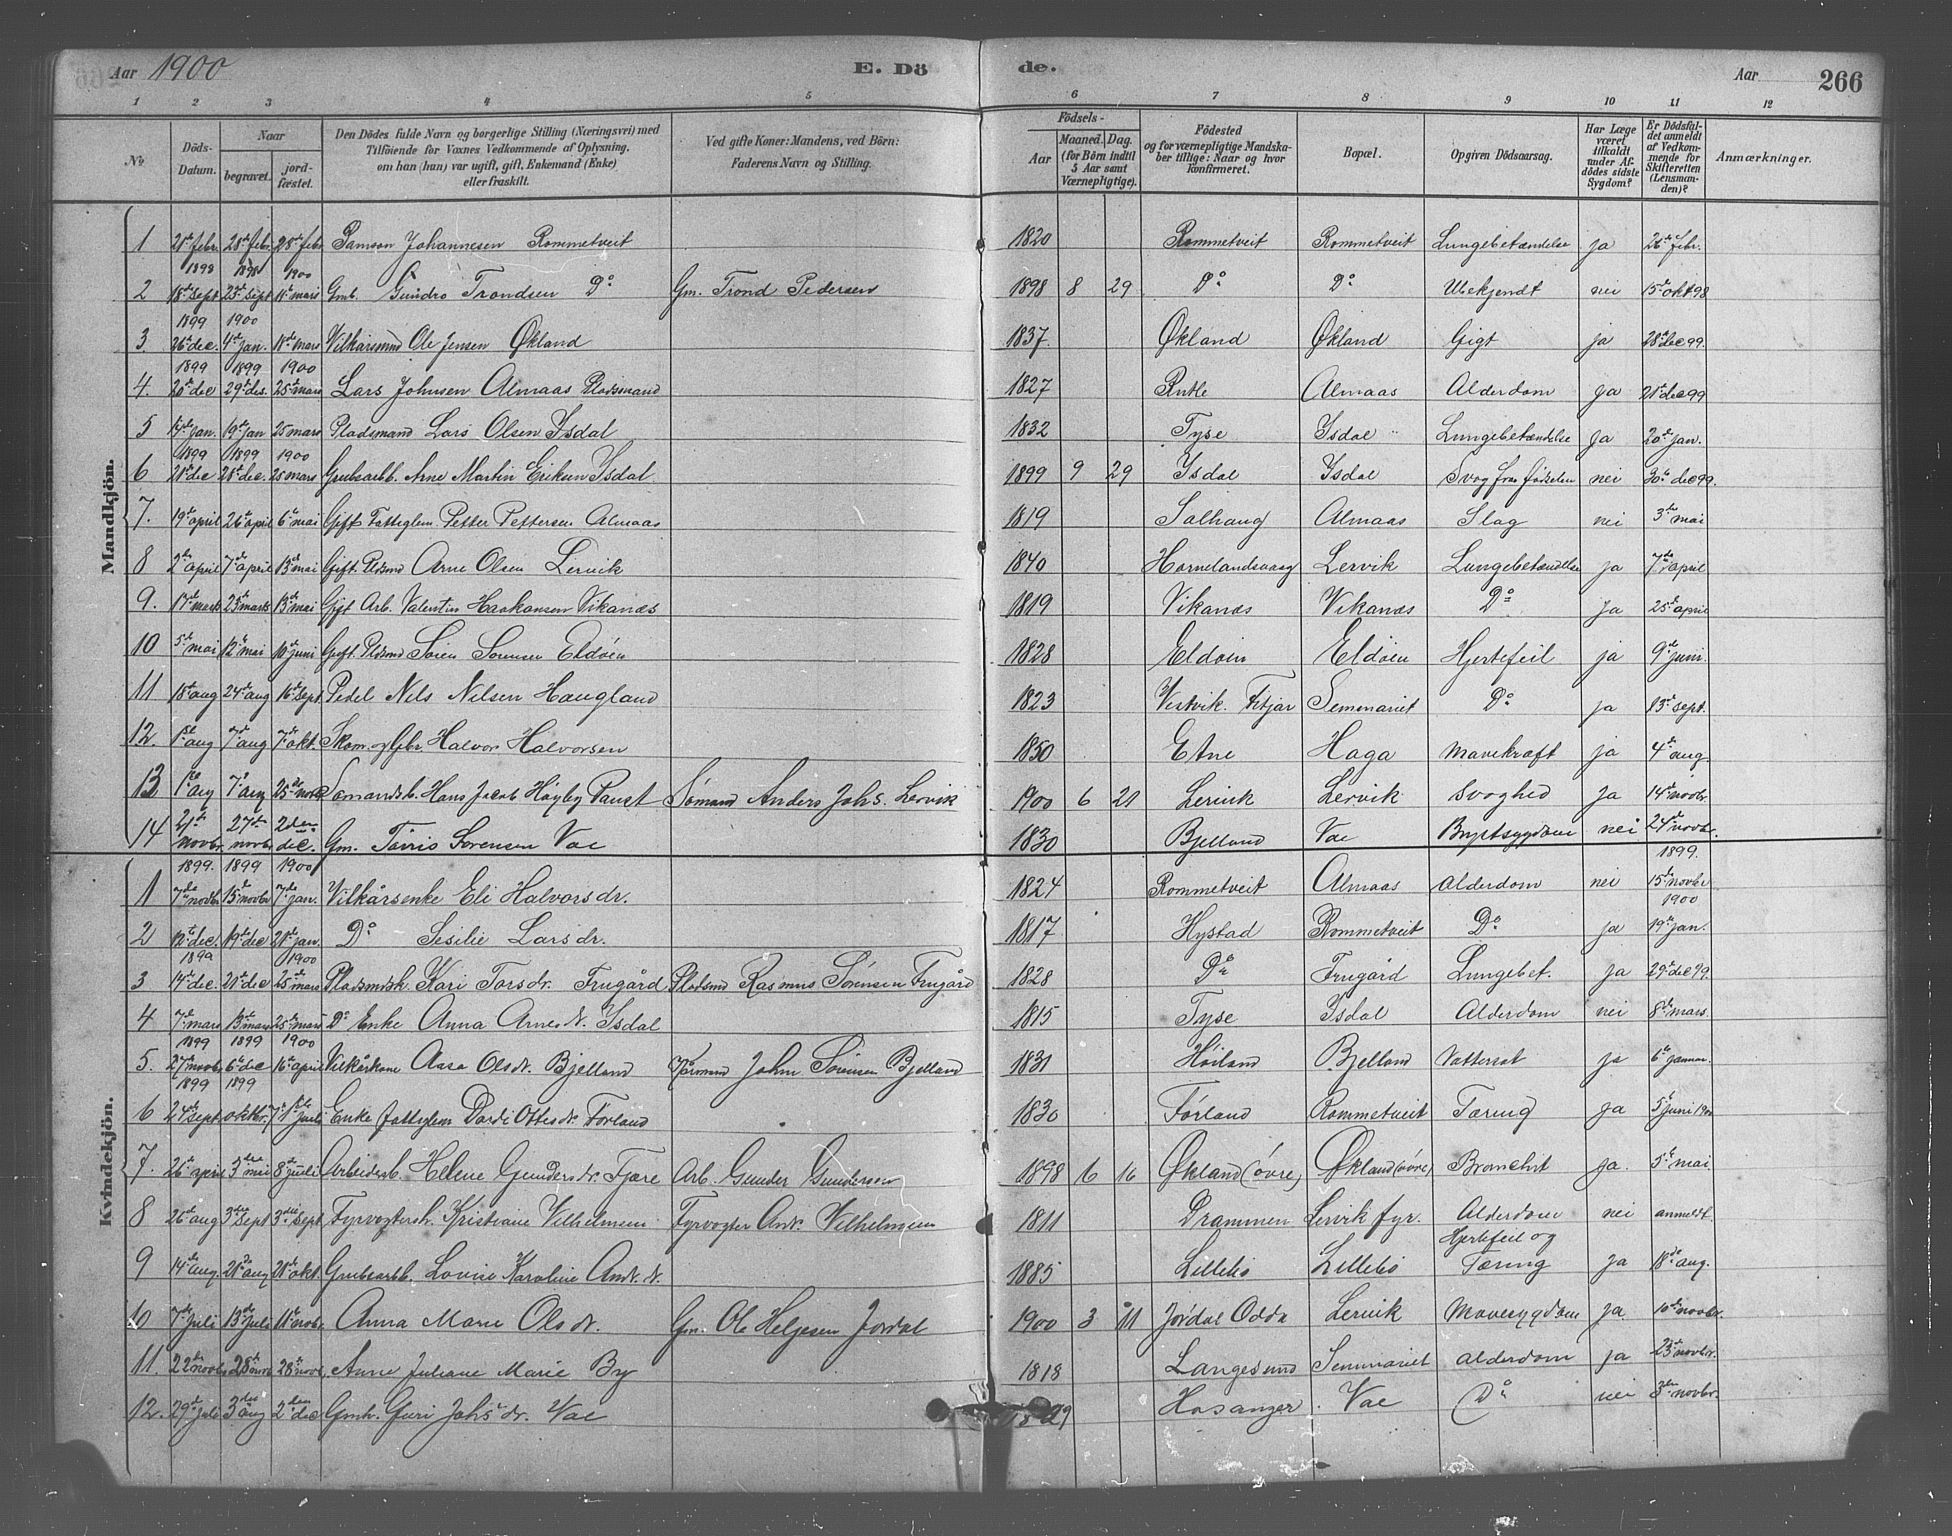 Aar 1900 E. Dö de. Aar 266
1 2 3 4 5 6 7 8 9 10 11 12
No Döds-Datum. Naar begravet. jord-fæstet. Den Dödes fulde Navn og borgerlige Stilling (Næringsvei) med Tilföiende for Voxnes Vedkommende af Oplysning, om han (hun) var ugift, gift, Enkemand (Enke) eller fraskilt. Ved gifte Koner: Mandens, ved Börn: Faderens Navn og Stilling. Födsels- Aar Maaned. Dag. (for Börn indtil 5 Aar samt Værnepligtige). Födested og for værnepligtige Mandska-ber tillige: Naar og hvor konfirmeret. Bopæl. Opgiven Dödsaarsag. Har Læge været tilkaldt under Af-dödes sidste Sygdom? Er Dödsfal-det anmeldt af Vedkom-mende for Skifteretten (Lensman-den)? Anmærkninger.
Mandkjön.
1 21de febr. 28de febr. 28de febr. Samson Johannesen Rommetveit 1820 Rommetveit Rommetveit Lungebetændelse ja 26de febr.
1898 1898 1900
2 18de sept 25de sept 11te mars Gmb. Gundro Trondsen Do Gm. Trond Pedersen 1898 8 29 Do Do Ubekjendt nei 15de okt 98
1899 1900
3 26de dec. 4de jan. 18de mars Vilkårsmnd Ole Jensen Økland 1837 Økland Økland Gigt ja 28de dec 99.
1899 1899 1900
4. 20de dec 29de des. 25de mars Lars Johnsen Almaas Pladsmand 1827 Almaas Alderdom ja 21de dec 99
5 14de jan. 19de jan 25 mars Pladsmand Lars Olsen Isdal 1832 Tyse Isdal Lungebetændelse ja 20de jan.
1899 1899 1900
6 21de dec 28de dec. 25 mars Grubearbb. Arne Martin Eriksen Isdal 1899 9 29 Isdal Isdal Svag fra fødselen nei 30de dec 99.
7. 19de april 26de april 6te mai Gift Fattiglem Petter Pettersen Almaas 1819 Salhaug Almaas Slag nei 3die mai
8 2den april 7de april 13de mai Gift. Pldsmd Arne Olsen Lervik 1840 Hornelandsvaag Lervik Lungebetændelse ja 7de april
9. 17de marts 23de marts 13de mai Gift Arb. Valentin Haakonsen Vikanæs 1819 Vikanæs Vikanæs Do ja 25de april
10 5te mai 12te mai 10de juni Gift. Pldsmd Søren Sørensen Eldøen 1828 Eldøen Eldøen Hjertefeil ja 9de juni.
11 18de aug 24de aug 16de sept. Pedel Nels Nilsen Haugland 1823 Vestvik. Fitjar Semenariet Do ja 13de sept.
12. 1ste aug 7de aug 7de okt. Skom. og Gbr. Halvor Halvorsen 1850 Etne Haga Mavekræft ja 4de aug.
13 1ste aug 7de aug 25de nov. Sømandsb. Hans Jacob Høyby Paust Sømand Anders Johs. Lervik 1900 6 21 Lervik Lervik Svaghed Ja 14de novbr.
14 21de novbr. 27de novbr. 2den dec. Gm. Tørris Sørensen Vae 1830 Bjelland Vae Brystsygdom nei 24de novbr.
Kvindekjön.
1899. 1899 1900 1899.
1 7de novbr. 15de novbr 7de jan. Vilkårsenke Eli Halvorsdr. 1824 Rommetveit Almaas Alderdom nei 15de novbr
1900
2 12te dec. 19de dec 21de jan. Do Sesilie Larsdr. 1817 Hystad Rommetveit Do ja 19de jan.
1899 1900
3 14de dec. 21de dec 25de mars Pladsmdsk. Kari Torsdr. Frugård. Pladsmd Rasmus Sørensen Frugård 1828 Do Frugård Lungebet. ja 29de dec 99.
4 7de mars 13de mars 25de mars Do Enke Anna Arnesdr. Isdal 1815 Tyse Isdal Alderdom nei 8de mars.
1899 1899 1900
5. 27de novbr. 6te dec 16te april Vilkårkone Aasa Olsdr. Bjelland John Sørensen Bjelland 1831 Høiland Bjelland Vattersot ja 6te januar.
1899 1899
6 24de sept. oktbr. 1ste juli Enke fattiglem Dordi Ottesdr. Førland 1830 Førland Rommetveit Tæring ja 5te juni 1900
7. 26de april 3die mai 8de juli Arbeidersb. Helene Gundersdr. Fjære Arb. Gunder Gundersen 1898 6 16 Økland (øvre) Økland (øvre) Bronchit ja. 5te mai.
8 26de aug 3die sept 3die sept. Fyrvogterk. Kristiane Vilhelmsen. Fyrvogter Andr. Vilhelmsen 1811 Drammen Lervik fyr. Alderdom nei anmeldt.
9 14de aug. 21de aug 21de okt. Grubearbb. Lovise Karoline Andr. dr. 1885 Lillebø Lillebø Hjertefeil og Tæring Ja 18de aug.
10 7de juli 13de juli 11te nobr. Anna Marie Olsdr. Gm. Ole Helgesen Jordal 1900 3 11 Jørdal Odda Lervik Mavesygdom ja. 10de novbr.
11. 22de novbr. 28de novbr 28de novb. Anne Juliane Marie By 1818 Langesund Seminariet Alderdom ja 23de novbr.
12. 29de juli 3die aug 2den dec Gmk. Guri Johs. dr. Vae 29 Hosanger. Vae Do nei 3die novbr.